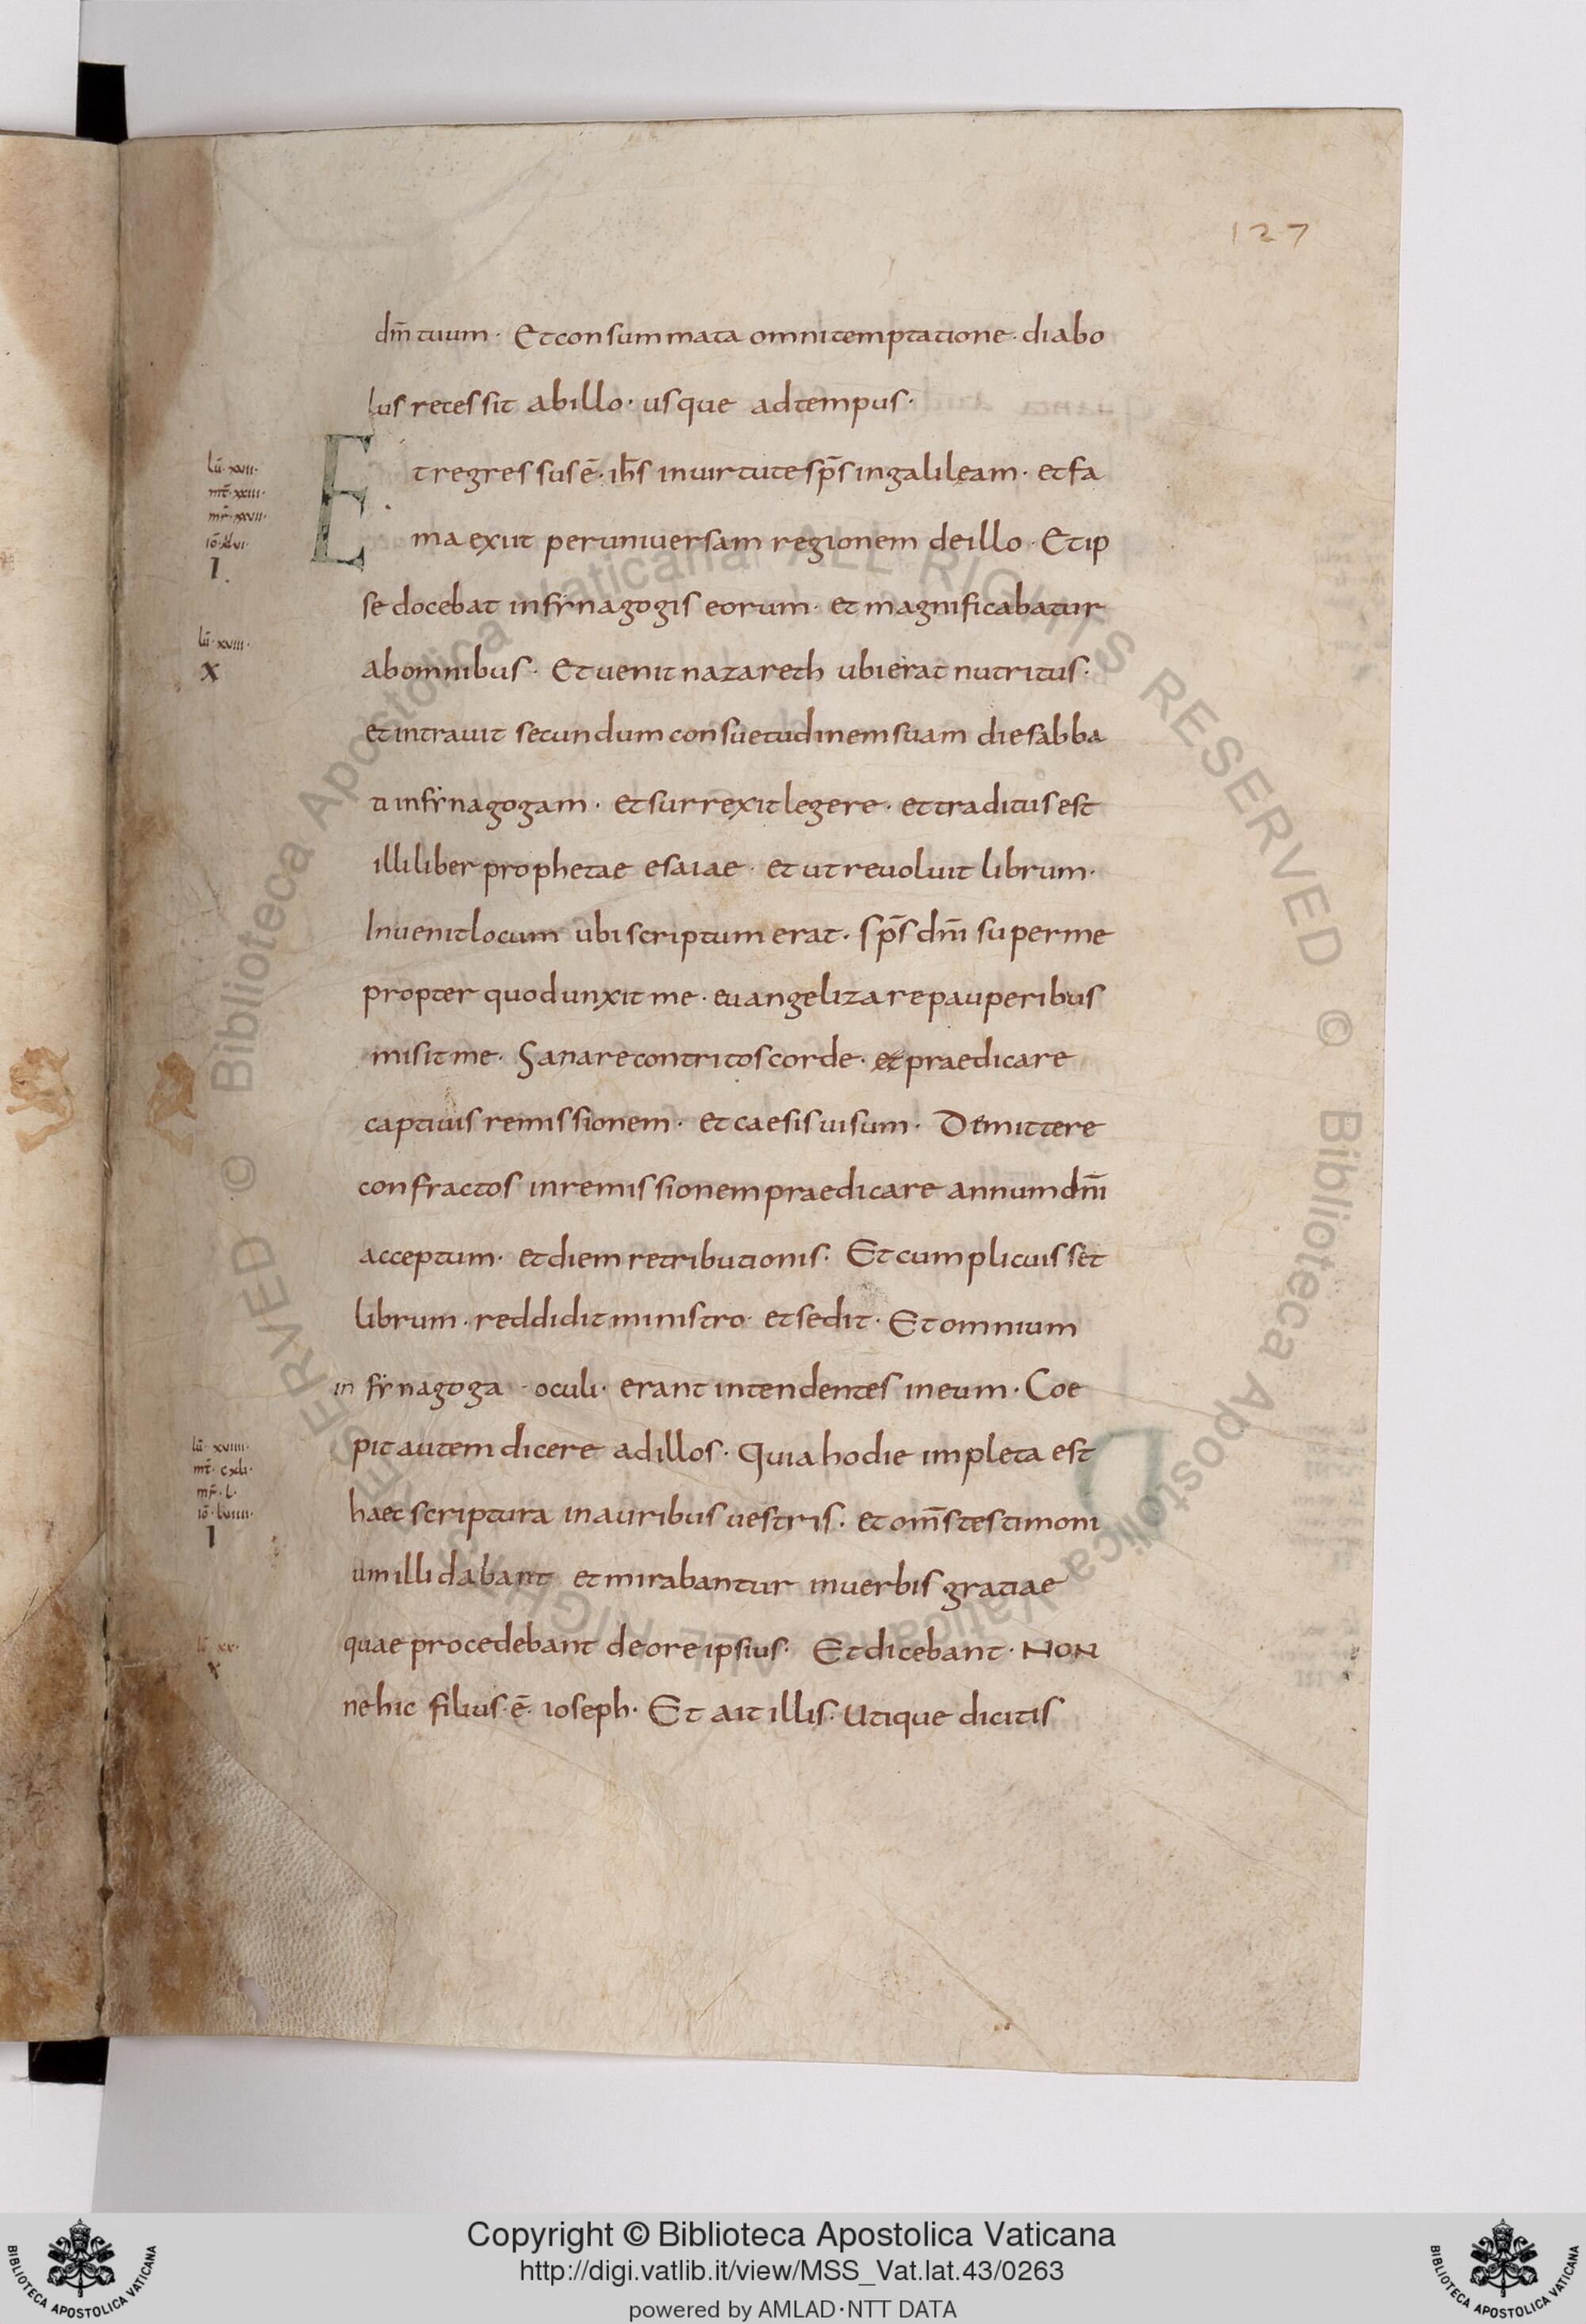 127
dm̄ tuum · Et consummata omni temptatione · diabo
lus recessit ab illo · usque ad tempus ·
Et regressus ē · ih̄s in uirtute sp̄s in galileam · et fa
ma exiit per uniuersam regionem de illo · Et ip
se docebat in synagogis eorum · et magnificabatur
ab omnibus · Et uenit nazareth ubi erat nutritus ·
et intrauit secundum consuetudinem suam die sabba
ti in synagogam · et surrexit legere · et traditus est
illi liber prophetae esaiae · et ut reuoluit librum ·
Inuenit locum ubi scriptum erat · sp̄s dn̄i super me
propter quod unxit me · euangelizare pauperibus
misit me · Sanare contritos corde · et praedicare
captiuis remissionem · et caesis uisum · Demittere
confractos in remissionem praedicare annum dn̄i
acceptum · et diem retributionis · Et cum plicuisset
librum · reddidit ministro · et sedit · Et omnium
in synagoga · oculi · erant intendentes in eum · Coe
pit autem dicere ad illos · Quia hodie impleta est
haec scriptura in auribus uestris · et om̄s testimoni
um illi dabant et mirabantur in uerbis gratiae
quae procedebant de ore ipsius · Et dicebant · NON
ne hic filius · ē · ioseph · Et ait illis · Utique dicitis
lū · xvii ·
mt̄ · xxiii ·
mr̄ · xxvii ·
iō · xlvi ·
I ·
lū · xviii ·
X
lū · xviiii ·
mt̄ · cxli ·
mr̄ · l ·
iō · lviiii ·
I
lū · xx ·
x
© Biblioteca Apostolica Vaticana ALL RIGHTS RESERVED © Biblioteca Apostolica Vaticana ALL RIGHTS RESERVED
Copyright © Biblioteca Apostolica Vaticana
http://digi.vatlib.it/view/MSS_Vat.lat.43/0263
powered by AMLAD·NTT DATA
BIBLIOTECA APOSTOLICA VATICANA
BIBLIOTECA APOSTOLICA VATICANA